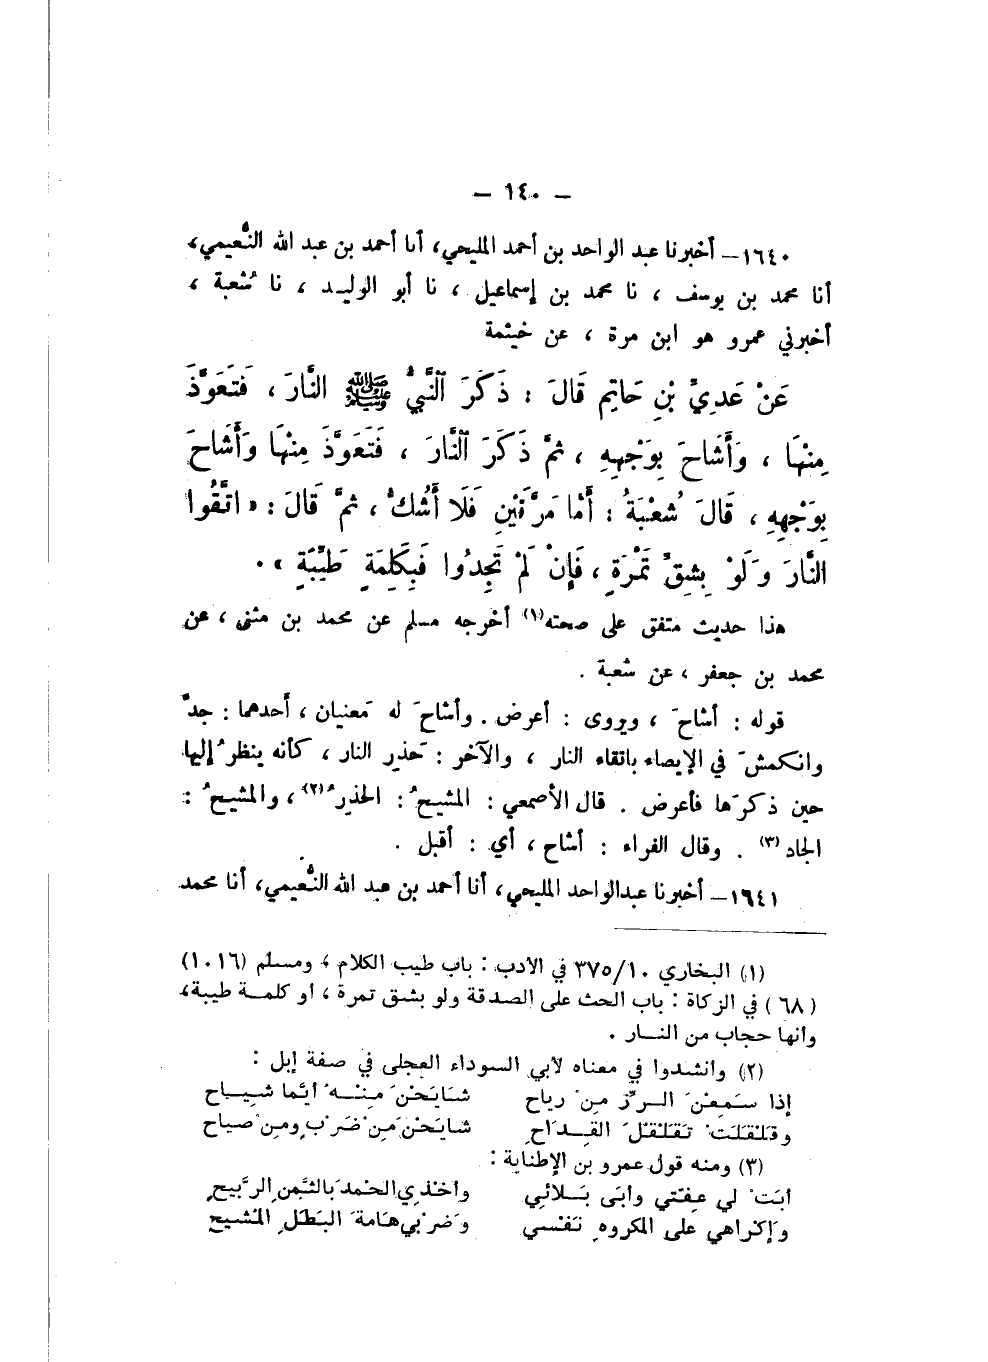 — ١٤٠ —
١٦٤٠ — أخبرنا عبد الواحد بن أحمد المليحي، أنا أحمد بن عبد الله النُّعيمي،
أنا محمد بن يوسف ، نا محمد بن إسماعيل ، نا أبو الوليد ، نا شعبة ،
أخبرني عمرو هو ابن مرة ، عن خيثمة
عَنْ عَدِيِّ بْنِ حَاتِمٍ قَالَ : ذَكَرَ ٱلنَّبِيُّ ﷺ النَّارَ ، فَتَعَوَّذَ
مِنْهَا ، وَأَشَاحَ بِوَجْهِهِ ، ثُمَّ ذَكَرَ ٱلنَّارَ ، فَتَعَوَّذَ مِنْهَا وَأَشَاحَ
بِوَجْهِهِ ، قَالَ شُعْبَةُ : أَمَّا مَرَّتَيْنِ فَلَا أَشُكُّ ، ثُمَّ قَالَ : « اتَّقُوا
النَّارَ وَلَوْ بِشِقِّ تَمْرَةٍ ، فَإِنْ لَمْ تَجِدُوا فَبِكَلِمَةٍ طَيِّبَةٍ » .
هذا حديث متفق على صحته(١) أخرجه مسلم عن محمد بن مثنى ، عن
محمد بن جعفر ، عن شعبة .
قوله : أشاحَ ، ويروى : أعرض . وأشاحَ له مَعنيان ، أحدهما : جدَّ
وانكمشَ في الإيصاء باتقاء النار ، والآخر : حَذر النار ، كأنه ينظرُ إليها
حين ذكرَها فأعرض . قال الأصمعي : المشيحُ : الحذرُ(٢) ، والمشيحُ :
الجاد(٣) . وقال الفراء : أشاح ، أي : أقبل .
١٦٤١ — أخبرنا عبدالواحد المليحي، أنا أحمد بن عبد الله النُّعيمي، أنا محمد
(١) البخاري ٣٧٥/١٠ في الأدب : باب طيب الكلام ، ومسلم (١٠١٦)
(٦٨) في الزكاة : باب الحث على الصدقة ولو بشق تمرة ، أو كلمة طيبة،
وأنها حجاب من النار .
(٢) وأنشدوا في معناه لأبي السوداء العجلي في صفة إبل :
إذا سَمِعْنَ الرِّزَّ مِنْ رياح شَايَحْنَ مِنْهُ أيَّما شِيَاحِ
وقَلْقَلَتْ تَقَلْقُلَ القِدَاحِ شايَحْنَ مِنْ ضَرْبٍ ومِنْ صياح
(٣) ومنه قول عمرو بن الإطنابة :
أبَتْ لي عِفَّتي وأبَى بَلائي وأخْذِي الحَمْدَ بالثَّمنِ الرَّبيحِ
وَإكْراهي على المكروهِ نَفْسي وَضَرْبي هَامَةَ البَطَلِ المُشيحِ